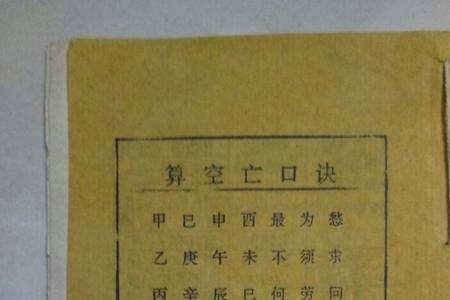 算空亡口诀
甲巳申酉最为愁
乙庚午未不须求
丙辛辰巳何劳问